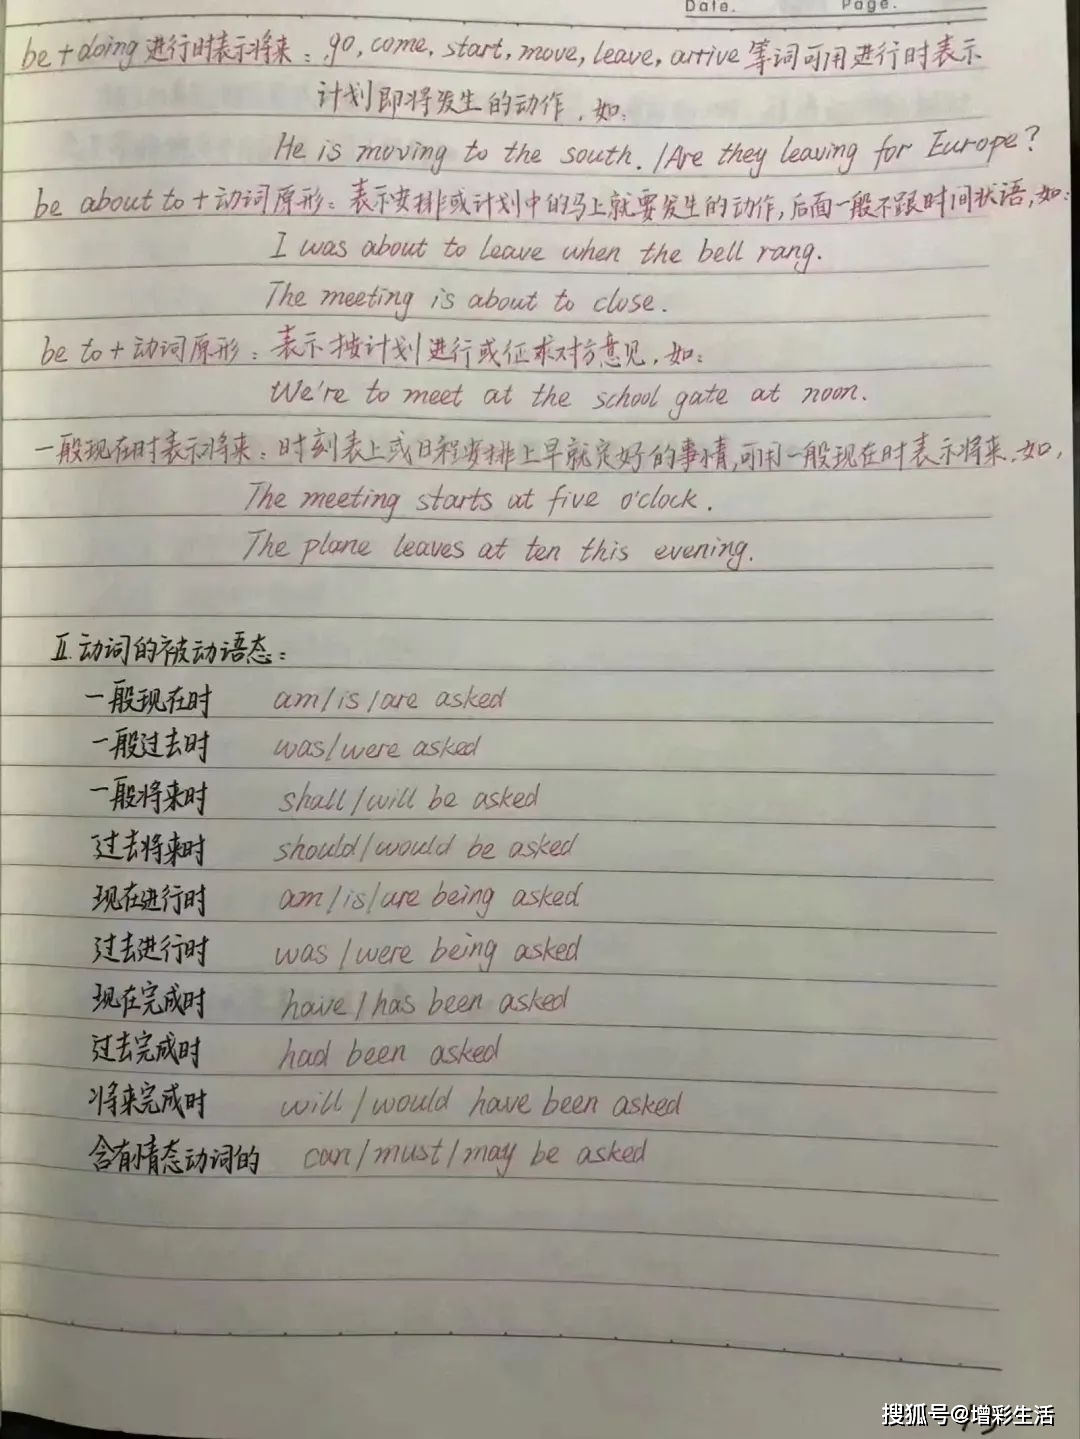 Date.    Page.
be + doing 进行时表示将来：go, come, start, move, leave, arrive 等词可用进行时表示
计划即将发生的动作，如：
He is moving to the south. / Are they leaving for Europe?
be about to + 动词原形：表示安排或计划中的马上就要发生的动作，后面一般不跟时间状语，如：
I was about to leave when the bell rang.
The meeting is about to close.
be to + 动词原形：表示按计划进行或征求对方意见，如：
We're to meet at the school gate at noon.
一般现在时表示将来：时刻表上或日程安排上早就定好的事情，可用一般现在时表示将来，如，
The meeting starts at five o'clock.
The plane leaves at ten this evening.
Ⅱ.动词的被动语态：
一般现在时 am / is / are asked
一般过去时 was / were asked
一般将来时 shall / will be asked
过去将来时 should / would be asked
现在进行时 am / is / are being asked
过去进行时 was / were being asked
现在完成时 have / has been asked
过去完成时 had been asked
将来完成时 will / would have been asked
含有情态动词的 can / must / may be asked
搜狐号@增彩生活